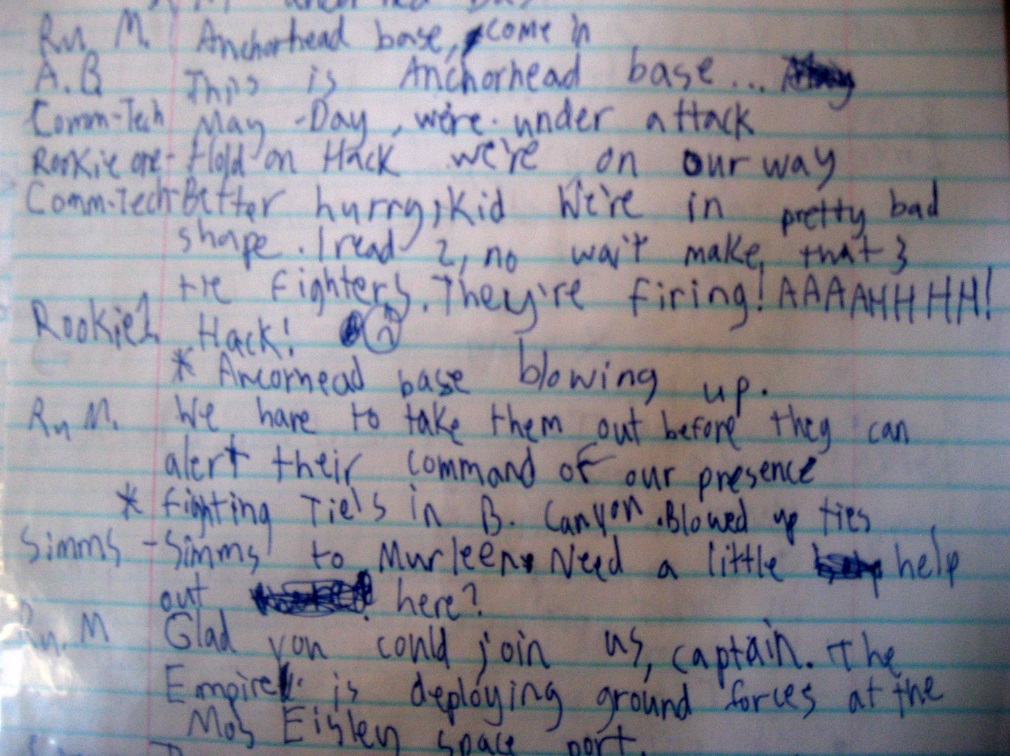 Ru. M. Anchorhead base, come in
A.B This is Anchorhead base...
Comm-Tech May-Day, we're under attack
Rookie one- Hold on Hack we're on our way
Comm-Tech-Better hurry, Kid We're in pretty bad
shape. I read 2, no wait make that 3
tie fighters. They're firing! AAAAHHHH!
Rookie 1 Hack!
* Ancorhead base blowing up.
Ru M. We have to take them out before they can
alert their command of our presence
* fighting Tie's in B. Canyon. Blowed up ties
Simms - Simms to Murleen. Need a little help
out here?
Ru. M Glad you could join us, captain. The
Empire is deploying ground forces at the
Mos Eisley space port.